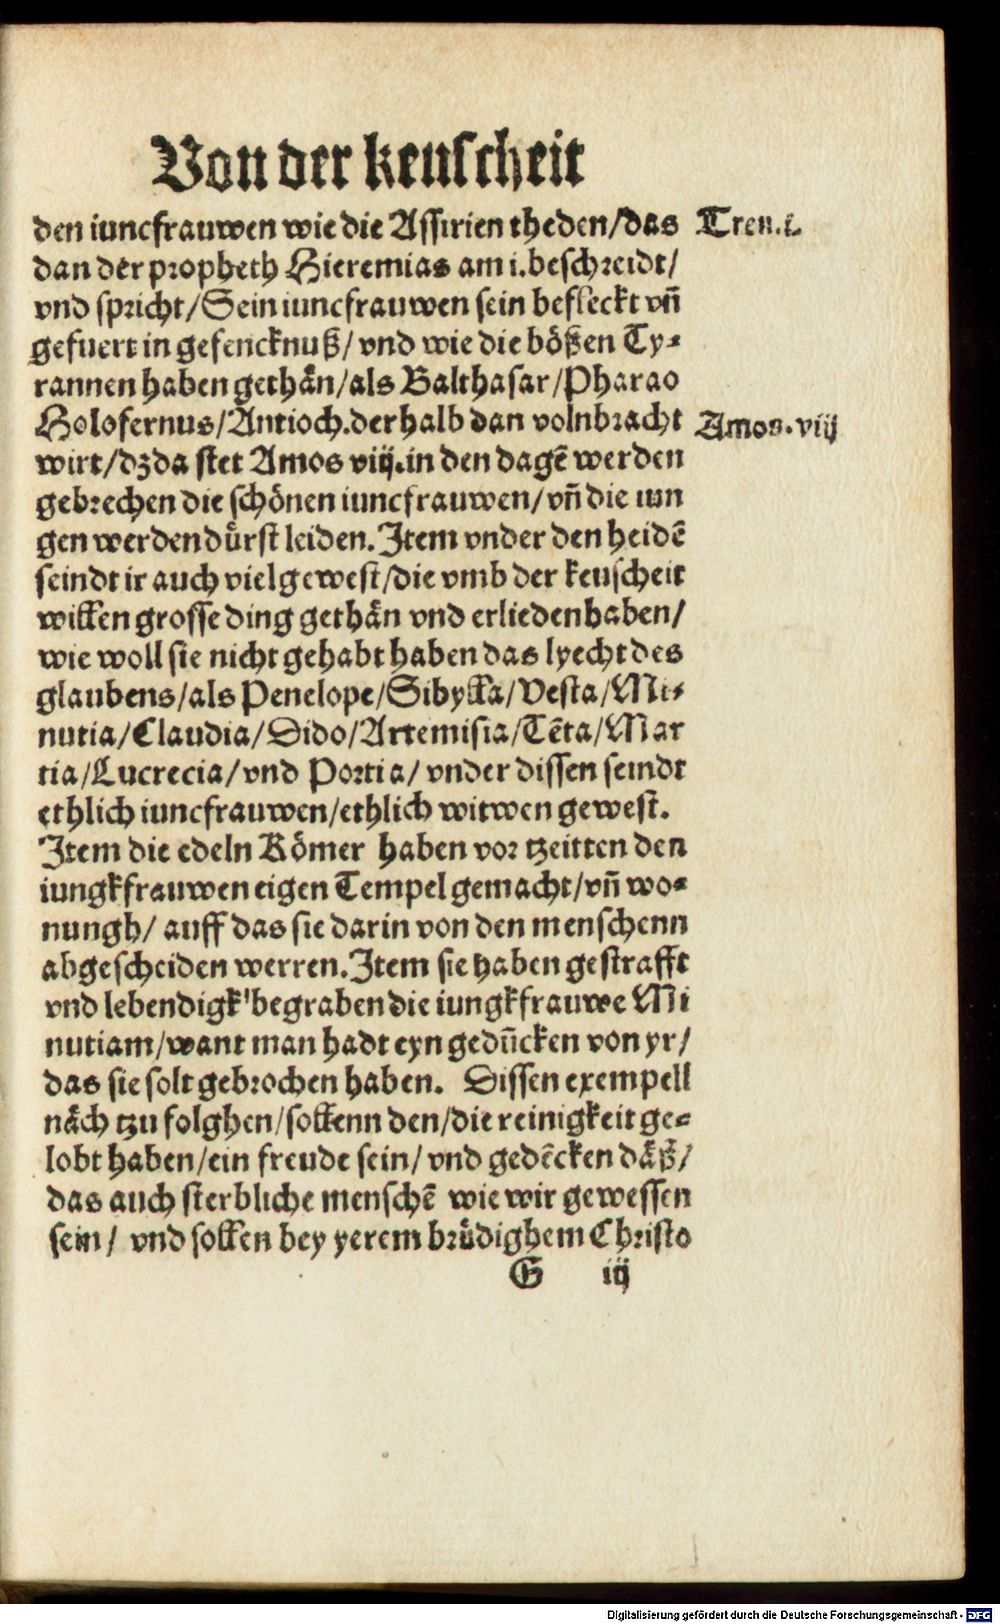 Von der keuscheit
den iuncfrauwen wie die Assirien theden/das Tren.i.
dan der propheth Hieremias am i.beschreidt/
vnd spricht/Sein iuncfrauwen sein befleckt vn̄
gefuert in gefencknuß/ vnd wie die bößen Ty⸗
rannen haben gethån/als Balthasar/Pharao
Holofernus/Antioch.derhalb dan volnbracht Amos.viij
wirt/dz da stet Amos viij.in den dagē werden
gebrechen die schönen iuncfrauwen/vn̄ die iun
gen werden důrst leiden. Item vnder den heidē
seindt ir auch viel gewest/die vmb der keuscheit
willen grosse ding gethån vnd erlieden haben/
wie woll sie nicht gehabt haben das lyecht des
glaubens/als Penelope/Sibylla/Vesta/Mi⸗
nutia/Claudia/Dido/Artemisia/Tēta/Mar
tia/Lucrecia/vnd Portia/ vnder dissen seindt
ethlich iuncfrauwen/ethlich witwen gewest.
Item die edeln Römer haben vor tzeitten den
iungkfrauwen eigen Tempel gemacht/vn̄ wo⸗
nungh/ auff das sie darin von den menschenn
abgescheiden werren. Item sie haben gestrafft
vnd lebendigk begraben die iungkfrauwe Mi
nutiam/want man hadt eyn gedūcken von yr/
das sie solt gebrochen haben. Dissen exempell
nåch tzu folghen/sollenn den/die reinigkeit ge⸗
lobt haben/ein freude sein/ vnd gedēcken dåß/
das auch sterbliche menschē wie wir gewessen
sein/ vnd sollen bey yerem brůdighem Christo
G iij
Digitalisierung gefördert durch die Deutsche Forschungsgemeinschaft - DFG